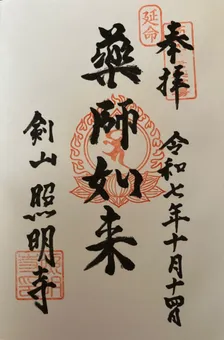 奉拝
令和七年十月十四日
延命
薬師如来
剣山 照明寺